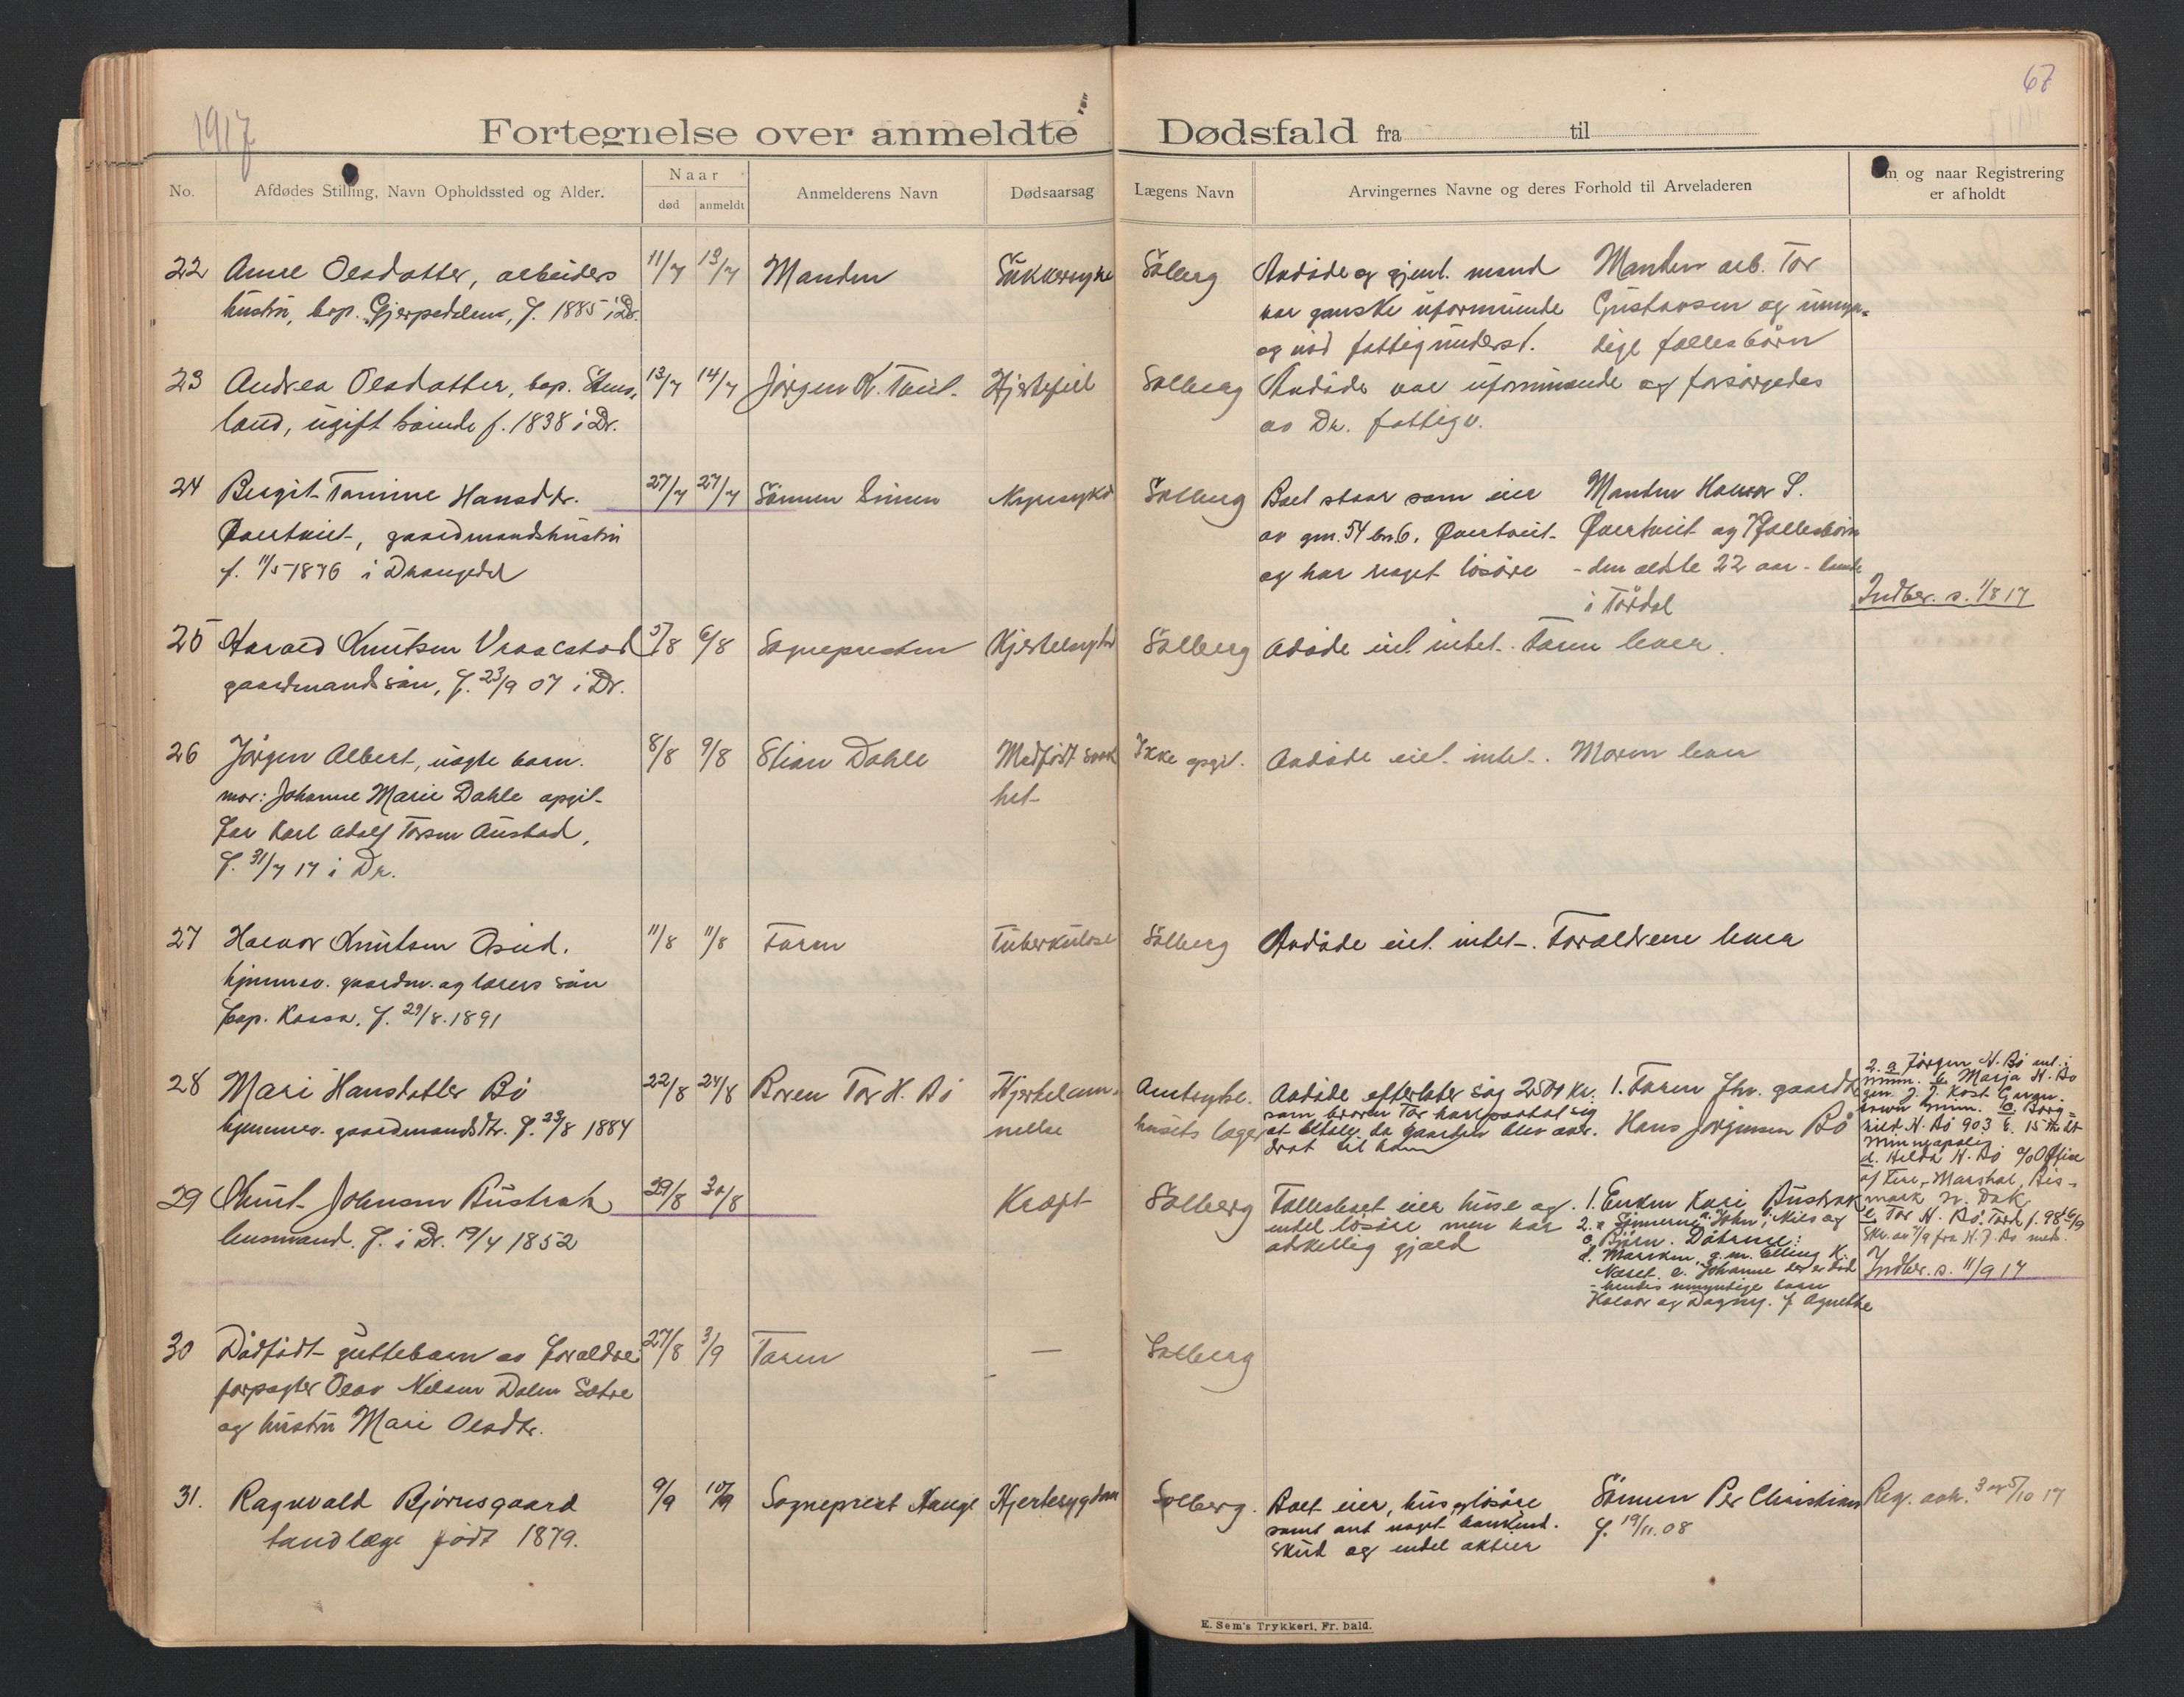 67
1917
Fortegnelse over anmeldte Dødsfald fra til
No.
Afdødes Stilling, Navn Opholdssted og Alder.
Naar
død
anmeldt
Anmelderens Navn
Dødsaarsag
Lægens Navn
Arvingernes Navne og deres Forhold til Arveladeren
Om og naar Registrering
er afholdt
22 Anne Olsdatter, arbeiders 11/7 13/7 Manden Sukkersyke Solberg Avdøde og gjenl. mand Manden arb. Tor
hustru, bop. Gjerpedalen, f. 1885 i Dr. var ganske uformuende Gustavsen og umyn-
og nød fattigunderst. dige fællesbörn
23 Andrea Olsdatter, bop. Stens- 13/7 14/7 Jørgen K. Tveit. Hjertefeil Solberg Avdøde var uformuende og forsørgedes
land, ugift f. 1838 i Dr. av Dr. fattigv.
24 Bergit Tomine Hansdtr. 27/7 27/7 Sønnen Nyresykd Solberg Boet staar som eier Manden Halvor S.
Øvertveit, gaardmandshustru av gnr. 54 bn. 6. Øvertveit Øvertveit og 7 fællesbörn
f. 11/5 1876 i Drangedal og har noget løsøre - den ældste 22 aar -
i Tørdal Indber. s. 1/8 17
25 Harald Knutsen Vraalstad 5/8 6/8 Sognepresten Hjertesykd Solberg Avdøde eiet intet. Faren lever.
gaardmandssøn, f. 23/9 07 i Dr.
26 Jørgen Albert, uægte barn. 8/8 9/8 Stian Dahle Medfødt svak Ikke opgit. Avdøde eiet intet. Moren lever
mor: Johanne Marie Dahle opgit het
far Karl Adolf Torsen Austad,
f. 31/7 17 i Dr.
27 Halvor Knutsen Åsud. 11/8 11/8 Faren Tuberkulose Solberg Avdøde eiet intet. Forældrene lever
hjemmev. gaardm. og lærers søn
bop. f. 29/8. 1891
28 Mari Hansdatter Bø 22/8 24/8 Broren Tor H. Bø Hjertelam- Amtsyke- Avdøde efterlater sig 2504 kr. 1. Faren fhv. gaardbr.
hjemmev. gaardmandsdtr. f. 23/8 1884 melse husets læge som broren Tor har paatat sig Hans Jørgensen Bø
at betale da gaarden blev over-
drat til ham
2. a Jørgen H. Bø
b. Marja H. Bø
c. Borg-
hild H. Bø 903 E. 15th St
Minneapolis.
d. Hilda H. Bø c/o Office
of Fire-Marshal, Bis-
mark N. Dak
e Tor H. Bø. Tørd f. 98
Skr. av 4/9 fra H. J. Bø
Indber. s. 11/9 17
29 Knut Johnsen Bustrak 29/8 30/8 Kræft Solberg Fællesboet eier huse og 1. Enken Kari Bustrak
lensmand. f. i Dr. 19/4 1852 endel løsøre men har 2. a Sønnerne John, b Nils og
adskellig gjæld c. Bjørn. Døtrene:
d. g. m. Elling K.
Næset. e. Johanne der er død
- hendes umyndige barn
Halvor og Dagny. f Agnethe
30 Dødfødt guttebarn av forældre 27/8 3/9 Faren — Solberg
forpagter Olav Nilsen Dalen Sætre
og hustru Mari Olsdtr.
31. Ragnvald Bjørnsgaard 9/9 10/9 Sogneprest Hauge Hjertesygdom Solberg. Boet eier, hus og løsøre Sønnen Per Christian Reg. avh. 3 og 5/10 17
tandlæge født 1879. samt noget bankind- f. 19/11. 08
skud og endel aktier
E. Sem's Trykkeri, Fr. hald.